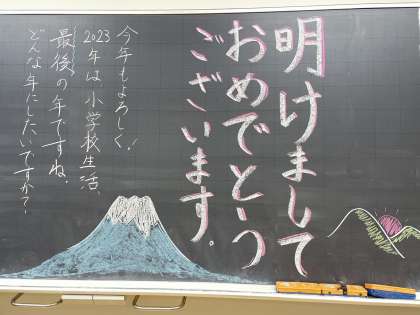 明けまして
おめでとう
ございます。
今年もよろしく!
2023
年は、小学校生活、
最後の年ですね。
どんな年にしたいですか?